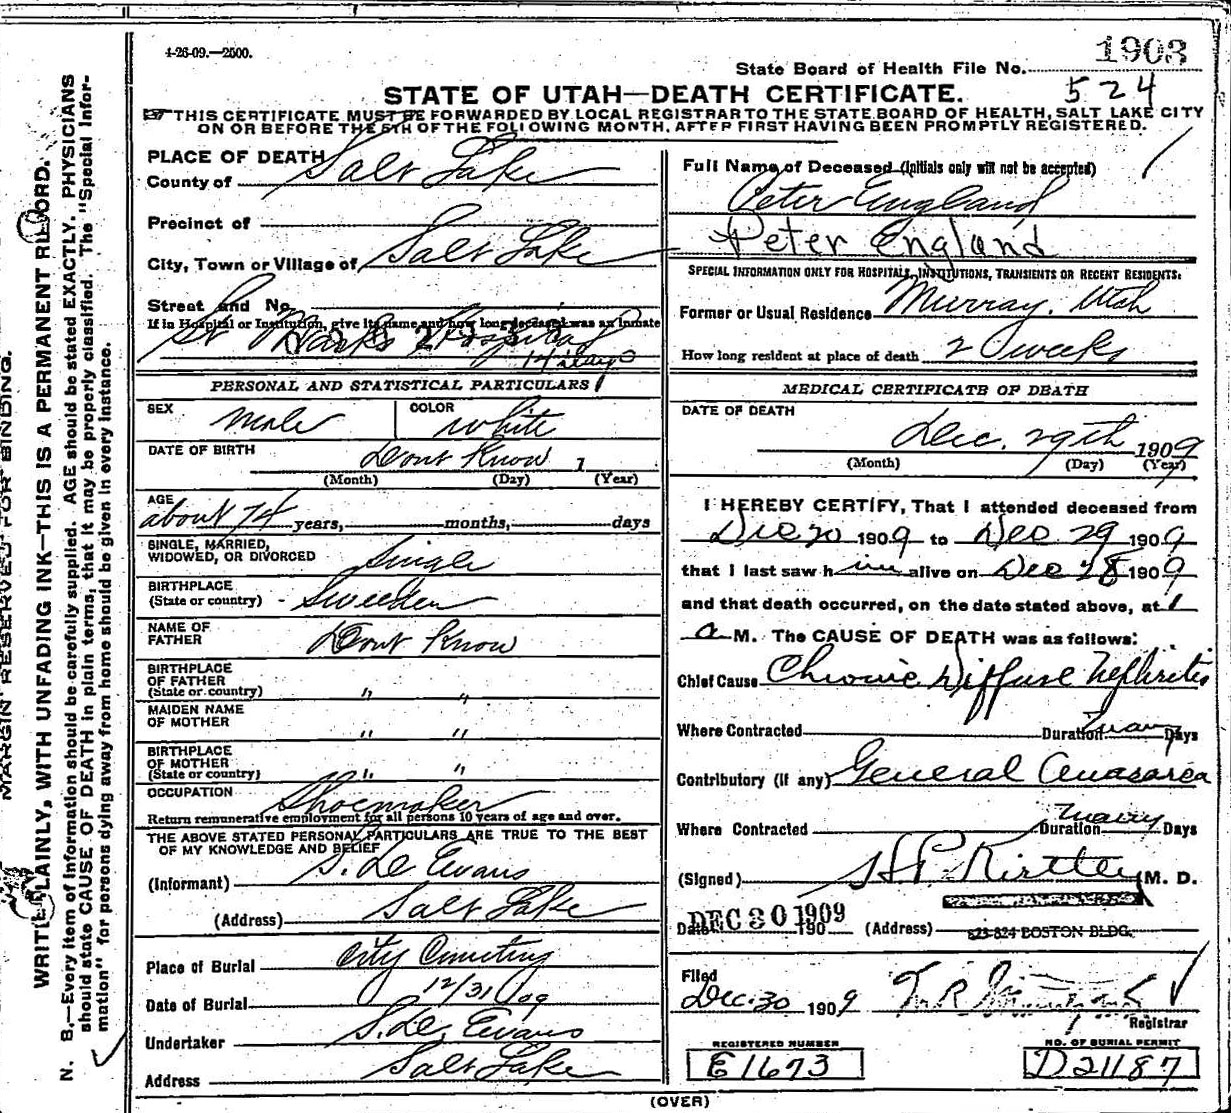 4-26-09.—2500.
1903
State Board of Health File No.
524
STATE OF UTAH—DEATH CERTIFICATE.
THIS CERTIFICATE MUST BE FORWARDED BY LOCAL REGISTRAR TO THE STATE BOARD OF HEALTH, SALT LAKE CITY
ON OR BEFORE THE 5TH OF THE FOLLOWING MONTH, AFTER FIRST HAVING BEEN PROMPTLY REGISTERED.
PLACE OF DEATH
County of Salt Lake
Precinct of
City, Town or Village of Salt Lake
Street and No.
If in Hospital or Institution, give its name and how long deceased was an inmate
St Marks Hospital
14 days
PERSONAL AND STATISTICAL PARTICULARS
SEX male COLOR white
DATE OF BIRTH Dont Know 1
(Month) (Day) (Year)
AGE
about 74 years, months, days
SINGLE, MARRIED,
WIDOWED, OR DIVORCED Single
BIRTHPLACE
(State or country) - Sweeden
NAME OF
FATHER Dont Know
BIRTHPLACE
OF FATHER
(State or country) " "
MAIDEN NAME
OF MOTHER " "
BIRTHPLACE
OF MOTHER
(State or country) " "
OCCUPATION Shoemaker
Return remunerative employment for all persons 10 years of age and over.
THE ABOVE STATED PERSONAL PARTICULARS ARE TRUE TO THE BEST
OF MY KNOWLEDGE AND BELIEF
(Informant) S. De Evans
(Address) Salt Lake
Place of Burial City Cemetery
Date of Burial 12/31 09
Undertaker S. De. Evans
Address Salt Lake
Full Name of Deceased (Initials only will not be accepted)
Peter England
Peter England
SPECIAL INFORMATION ONLY FOR HOSPITALS, INSTITUTIONS, TRANSIENTS OR RECENT RESIDENTS:
Former or Usual Residence Murray, Utah
How long resident at place of death 2 weeks
MEDICAL CERTIFICATE OF DEATH
DATE OF DEATH
Dec. 29th 1909
(Month) (Day) (Year)
I HEREBY CERTIFY, That I attended deceased from
Dec 20 1909 to Dec 29 1909
that I last saw him alive on Dec 28 1909
and that death occurred, on the date stated above, at 1
a M. The CAUSE OF DEATH was as follows:
Chief Cause Chronic Diffuse Nephritis
Where Contracted Duration many Days
Contributory (if any) General Anasarca
Where Contracted Duration many Days
(Signed) H P Kirtley M. D.
DEC 30 1909
Date 190 (Address) 823-824 BOSTON BLDG.
Filed
Dec. 30 1909
Registrar
REGISTERED NUMBER
E1673
NO. OF BURIAL PERMIT
D21187
(OVER)
MARGIN RESERVED FOR BINDING.
WRITE PLAINLY, WITH UNFADING INK—THIS IS A PERMANENT RECORD.
N. B.—Every item of information should be carefully supplied. AGE should be stated EXACTLY. PHYSICIANS
should state CAUSE OF DEATH in plain terms, that it may be properly classified. The "Special Infor-
mation" for persons dying away from home should be given in every instance.